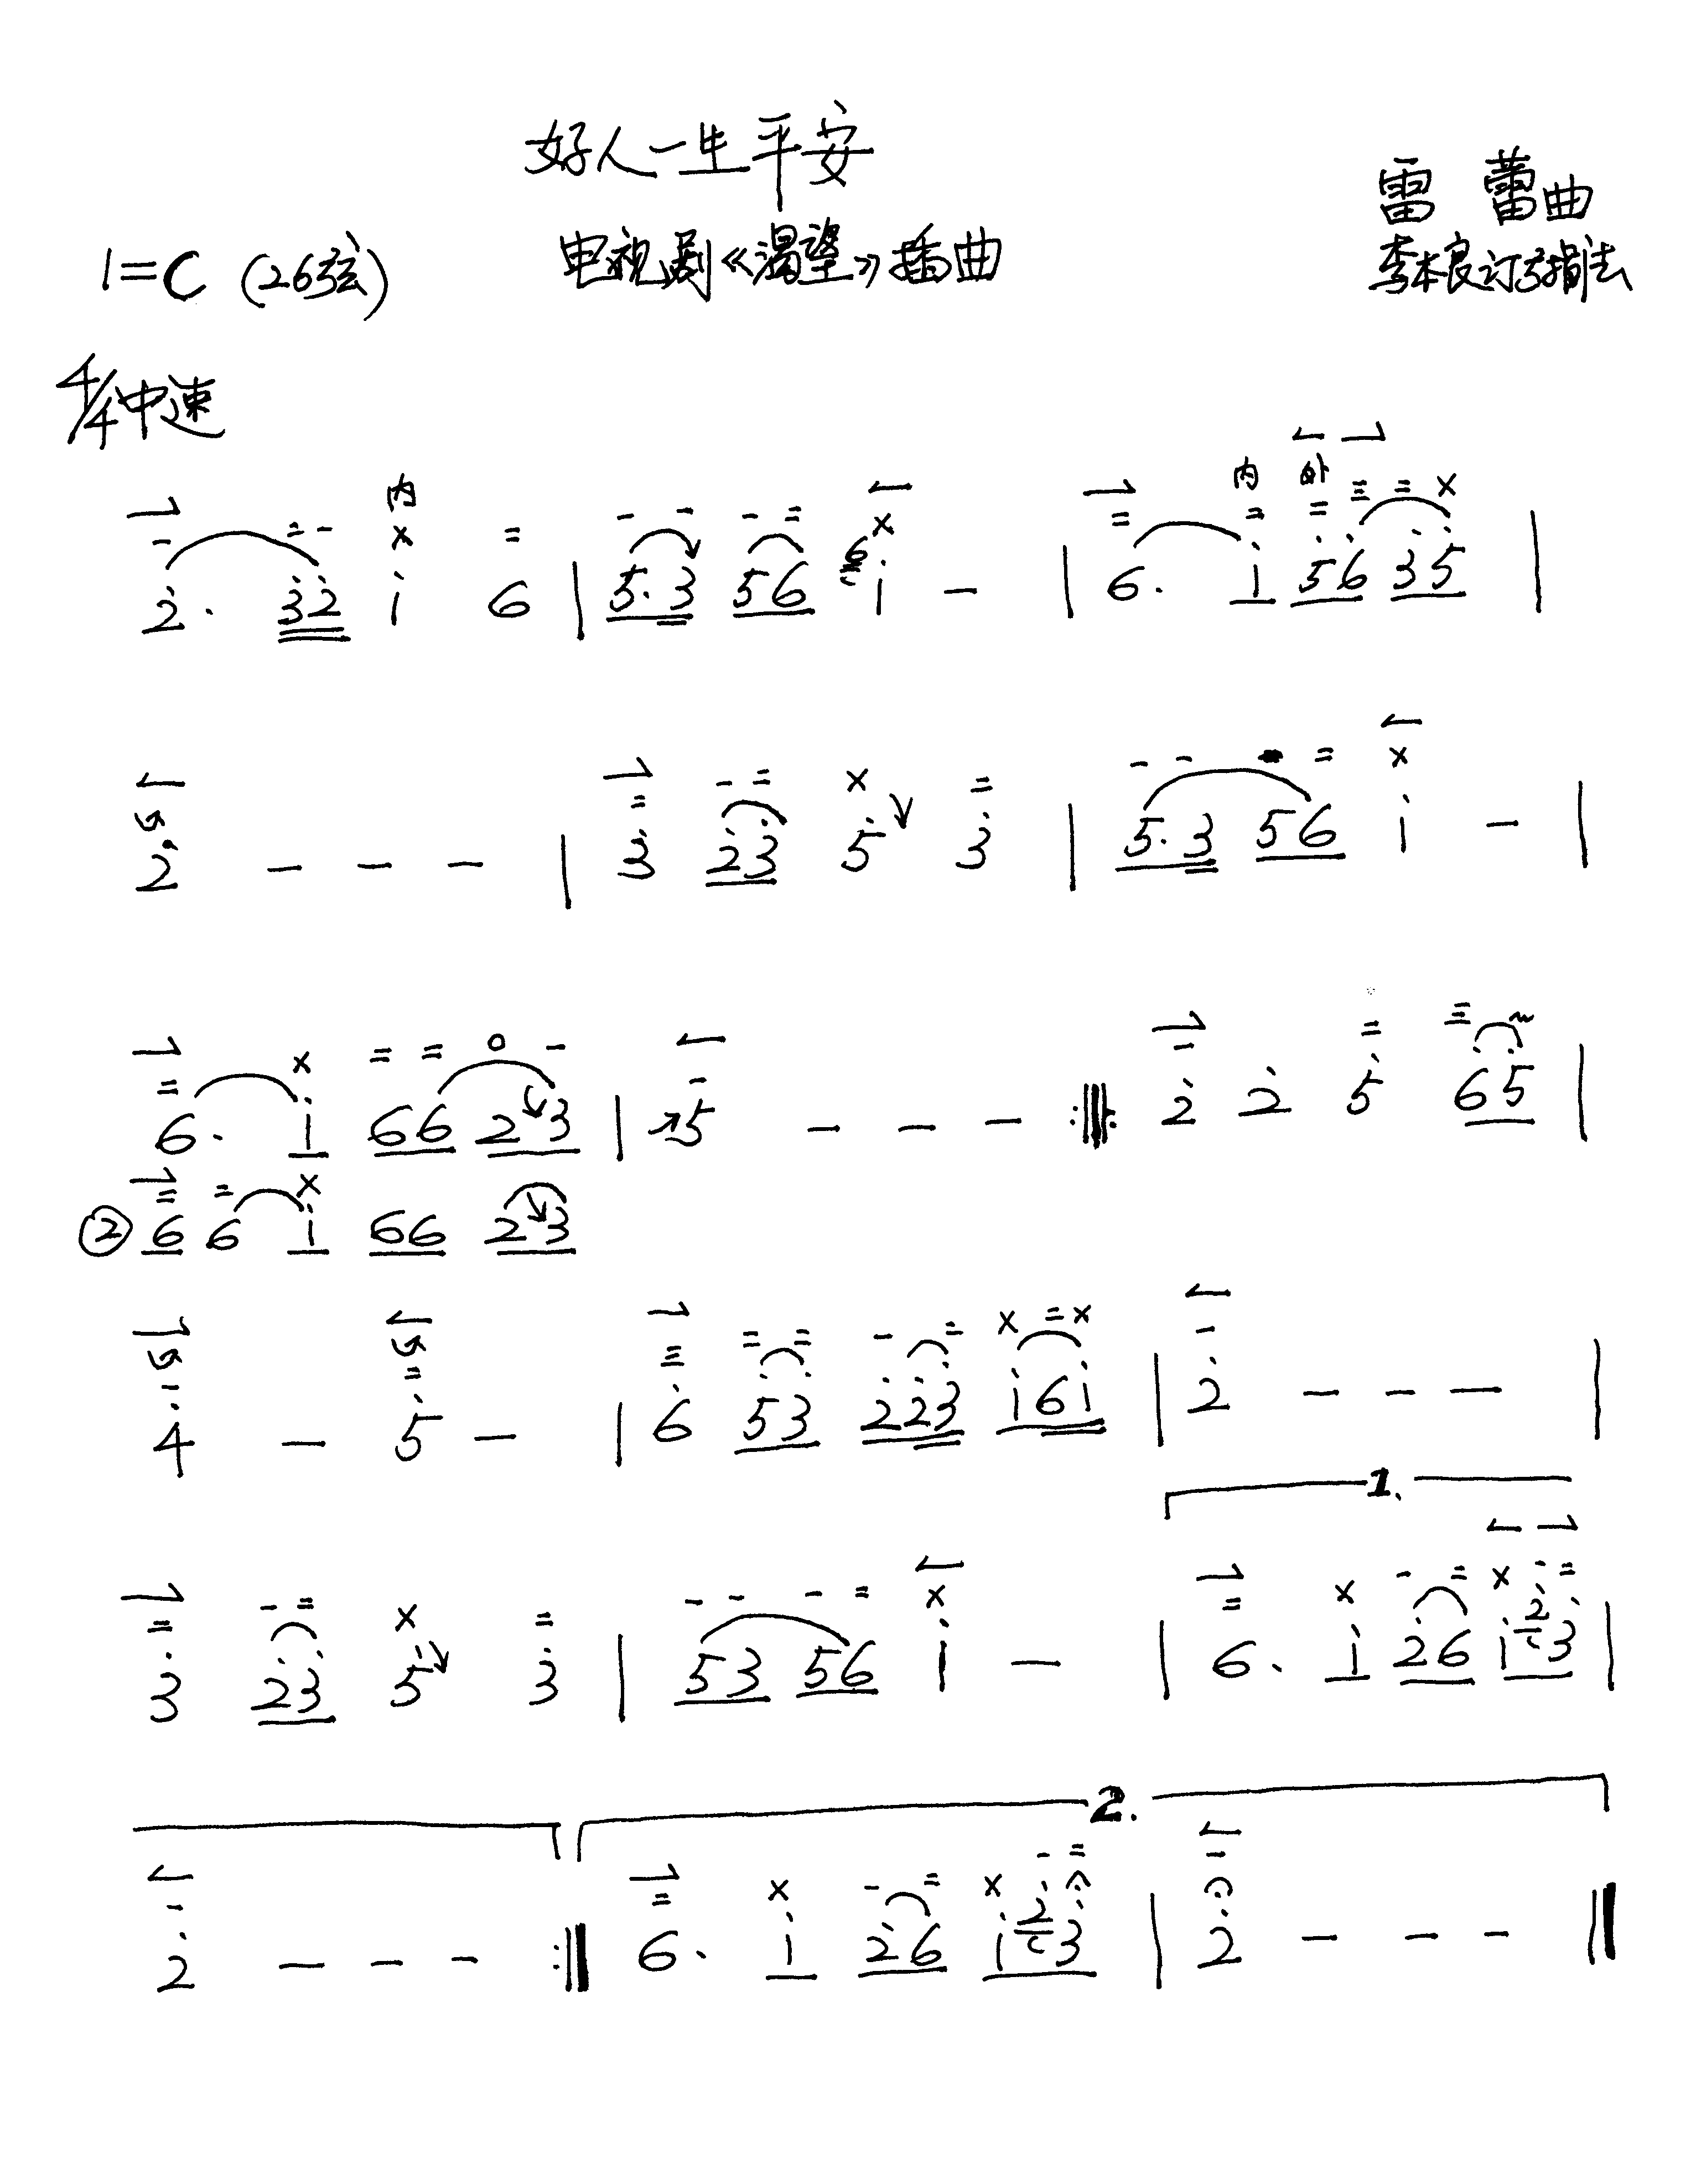 好人一生平安
雷 蕾曲
1=C (26弦) 电视剧《渴望》插曲
李本良订弓指法
4/4中速
内 内 外
2̇. 3̇2̇ i 6 | 5.3 56 6 i - | 6. i 5̇6̇ 3̇5̇ |
2̇ - - - | 3̇ 2̇3̇ 5̇ 3̇ | 5.3 56 i - |
6. i 66 23 | 5 - - - :‖: 2̇ 2̇ 5̇ 6̇5̇ |
② 6 6 i 66 23
4̇ - 5̇ - | 6̇ 5̇3̇ 2̇2̇3̇ i6i | 2̇ - - - |
1.
3̇ 2̇3̇ 5̇ 3̇ | 53 56 i - | 6. i 2̇6 i 2̇ 3̇ |
2.
2̇ - - - :‖ 6. i 2̇6 i 2̇ 3̇ | 2̇ - - - ‖